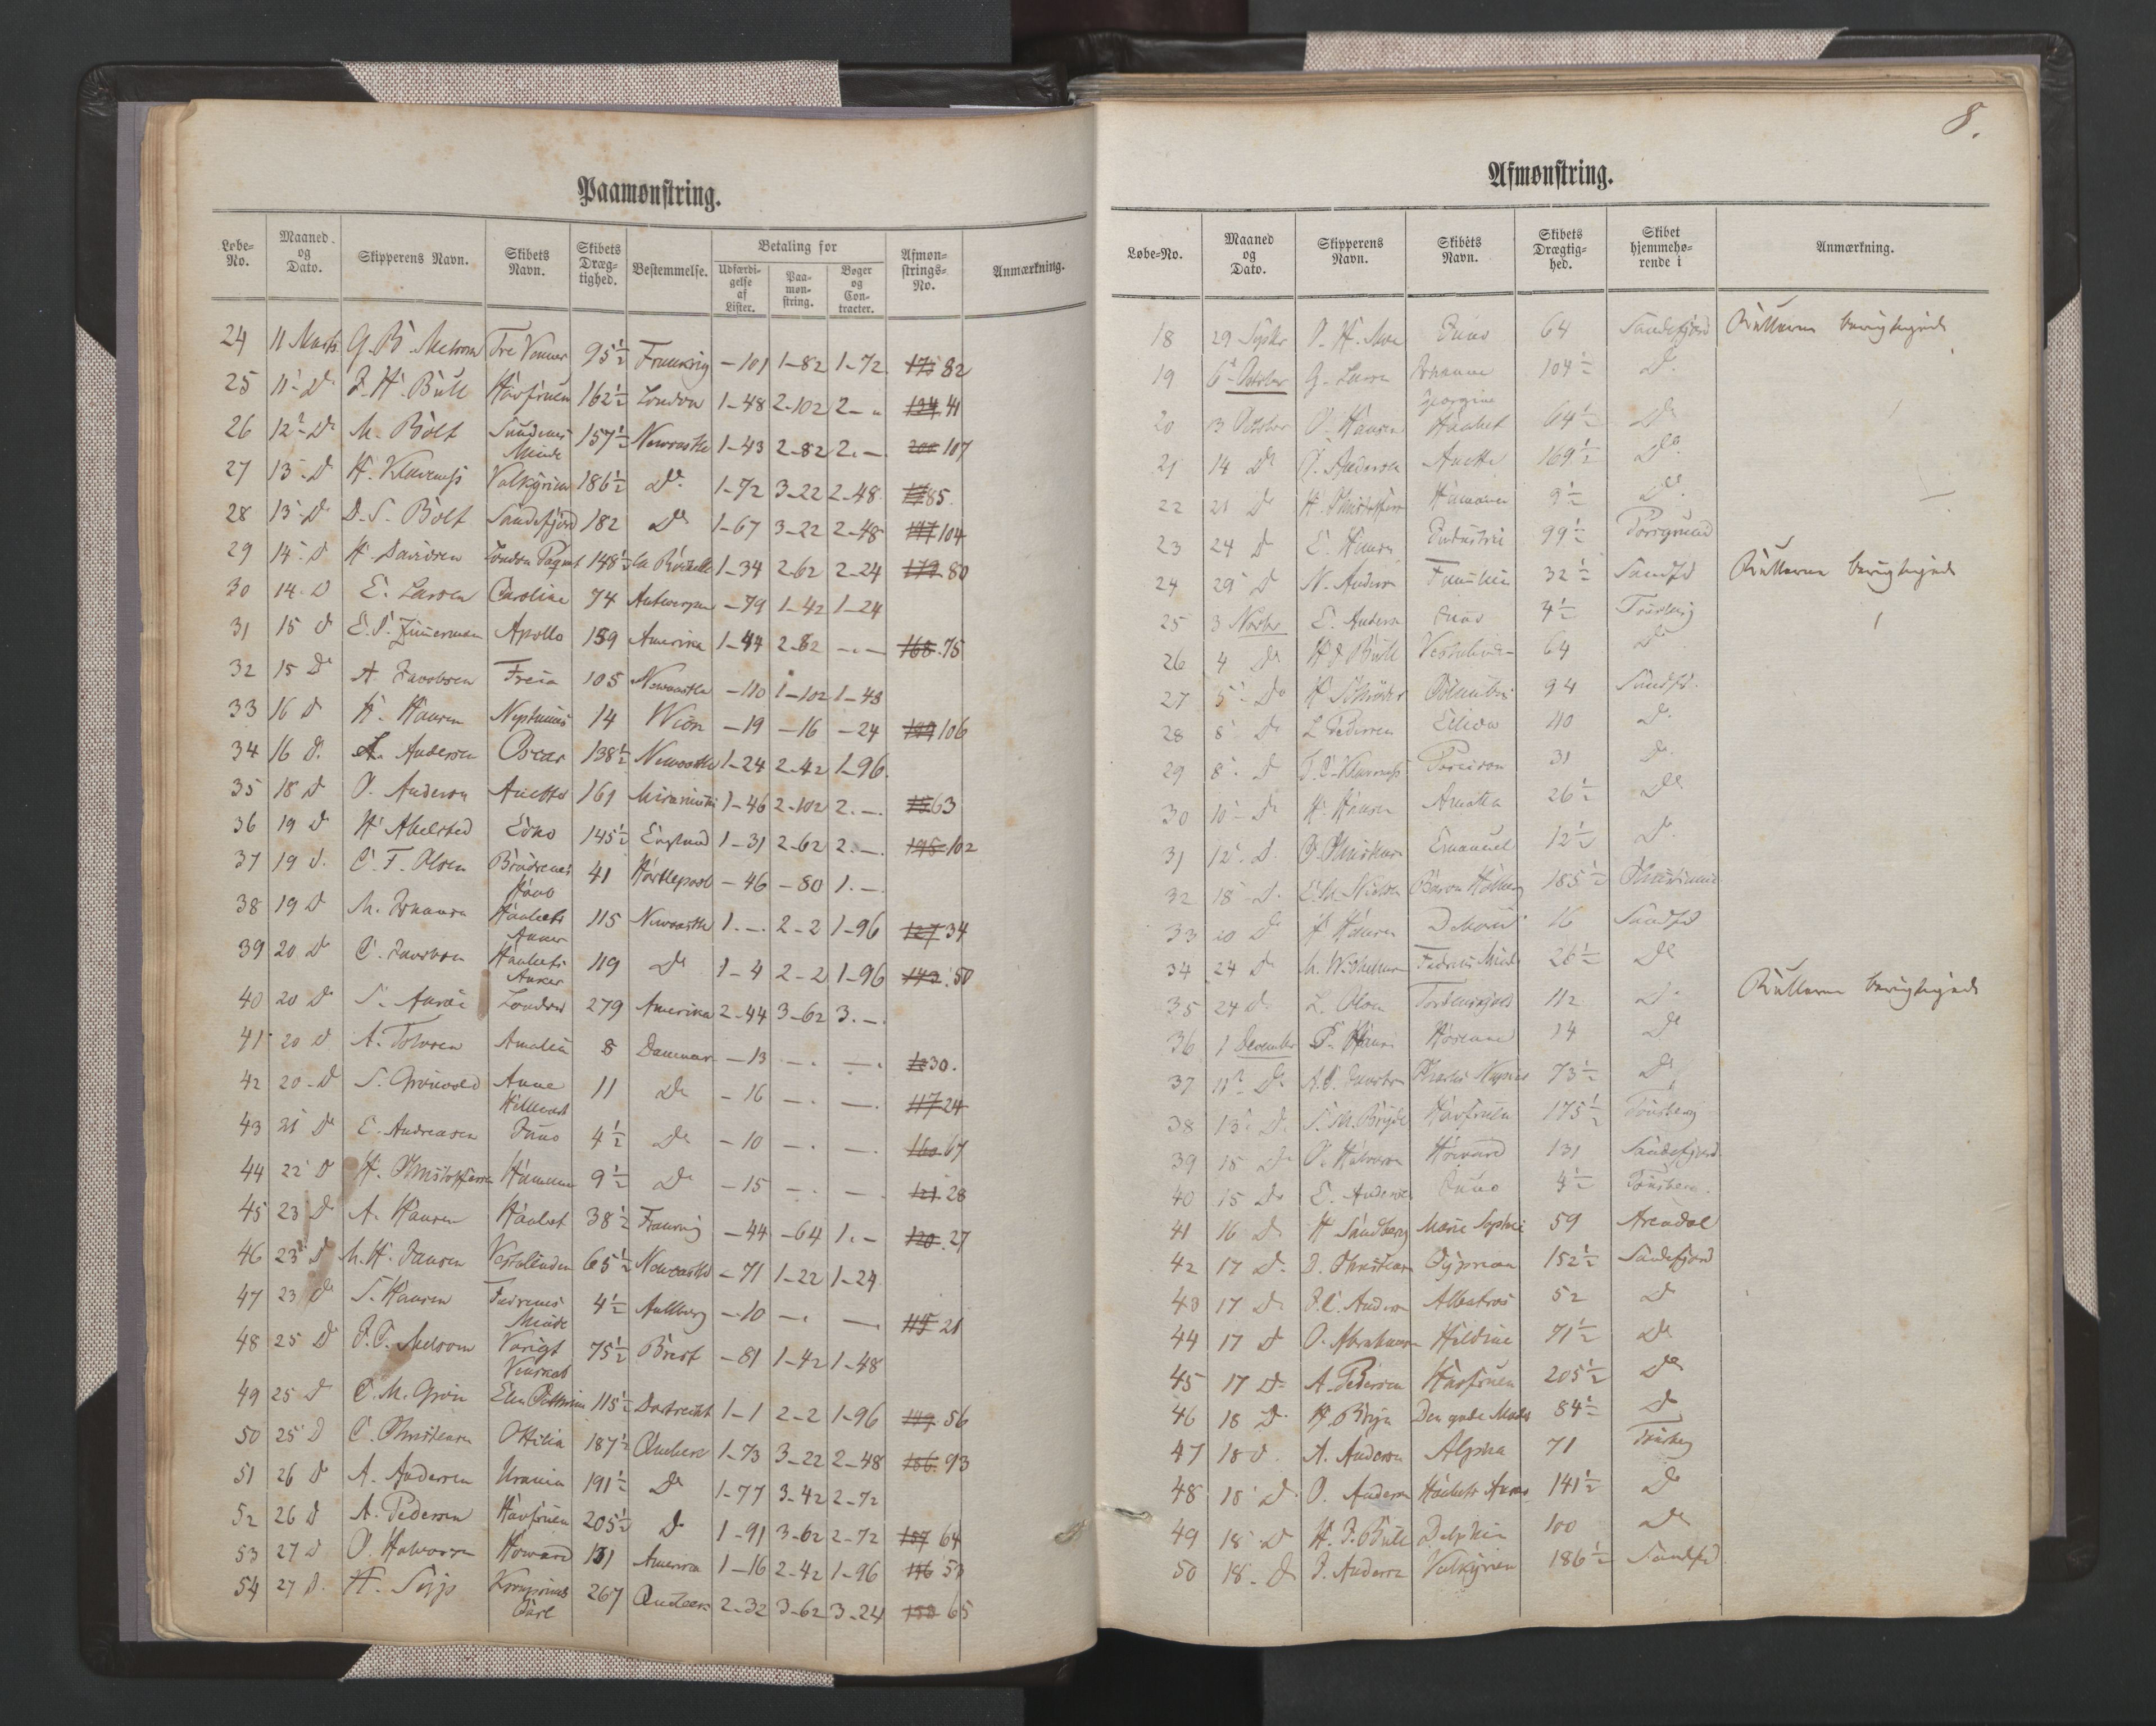 Paamønstring.
Løbe-No. Maaned og Dato. Skipperens Navn. Skibets Navn. Skibets Dræg-tighed. Bestemmelse. Betaling for Udfærdi-gelse af Lister. Paa-møn-string. Bøger og Con-tracter. Afmøn-strings-No. Anmærkning.
24 11 Marts G. B. Melsom Tre Venner 95½ Frankrig -101 1-82 1-72 82
25 11 D. H. Bull Havfruen 162½ London 1-48 2-102 2-„ 134 41
26 12 D M. Bolt Sandenes Minde 157½ Newcastle 1-43 2-82 2.- 107
27 13 D H. Klaveness Valkyrien 186½ D 1-72 3-22 2-48 85.
28 13 D D. S. Bolt Sandefjord 182 D 1-67 3-22 2-48 147 104
29 14 D H. Davidsen London Paquet 148½ La Rochelle 1-34 2-62 2-24 173 80
30 14 D E. Larsen Caroline 74 Antwerpen -79 1-42 1-24
31 15 D Zimmerman Apollo 159 Amerika 1-44 2-82 -.- 168 75
32 15 D A Jacobsen Freia 105 Newcastle -110 1-102 1-48
33 16 D H. Hansen Neptunus 14 -19 -16 -24 199 106
34 16 D. A. Andersen Oscar 138½ Newcastle 1-24 2-42 1-96.
35 18 D O. Anderson Anette 161 Miramichi 1-46 2-102 2.-. 63
36 19 D H Abelsted Echo 145½ England 1-31 2-62 2.-. 195 102
37 19 D. C. F. Olsen Brødrenes Haab 41 Hartlepool -46 -80 1.-.
38 19 D M. Johansen Haabets Anker 115 Newcastle 1.-. 2-2 1-96 127 34
39 20 D C. Jacobsen Haabets Anker 119 D 1-4 2-2 1-96 143 50
40 20 D S. London 279 Amerika 2-44 3-62 3.-.
41 20 D A. Tolvsen Amalia 8 Danmark -13 -. -. 30.
42 20 D S. Grønvold Anne 11 D -16 -. -. 117 24
43 21 D E. Andreasen Juno 4½ D -10 -. -. 160 67
44 22 D H. Christoffersen 9½ D -15 -. -. 121 28
45 23 D A. Hansen Haabet 38½ Frankrig -44 -64 1.- 120. 27
46 23 D M. H. Jansen Vestalinden 65½ Newcastle -71 1-22 1-24
47 23 D S. Hansen Fædrenes Minde 4½ Aalborg -10 -. -. 115 21
48 25 D Melsom Varigt Venskab 75½ Brest -81 1-42 1-48
49 25 D C. M. Grøn 115½ Dortrecht 1-1 2-2 1-96 149 56
50 25 D C. Christensen Ottilia 187½ Qvebec 1-73 3-22 2-48 186 93
51 26 D A. Andersen Urania 191½ D 1-77 3-42 2-72
52 26 D A. Pedersen Havfruen 205½ D 1-91 3-62 2-72 157 64
53 27 D O. Halvorsen Howard 131 Amerika 1-16 2-42 1-96 146 53
54 27 D. Kronprinds Carl 267 Quebec 2-32 3-62 3-24 158 65
8.
Afmønstring.
Løbe-No. Maaned og Dato. Skipperens Navn. Skibets Navn. Skibets Drægtig-hed. Skibet hjemmehø-rende i Anmærkning.
18 29 Septbr Juno 64 Sandefjord Rullerne berigtigede
19 6 October G. Larsen Johanne Georgine 104½ D.
20 13 October O. Hansen Haabet 64½ D
21 14 D O. Andersen Anette 169½ D
22 21 D H. Christoffersen 9½ D
23 24 D E. Hansen Industrie 99½ Porsgrund
24 29 D N. Andersen Familien 32½ Sandfd Rullerne berigtigede
25 3 Novbr E. Andersen Juno 4½ Tønsberg
26 4 D Bull Vestalinden 64 D
27 5 D H Schrøder Columbus 94 Sandfd.
28 8 D L Pedersen Ellida 40 D
29 8 D Klaveness 31 D
30 10 D H. Hansen Amalia 26½ D
31 12 D Emanuel 12½ D
32 18 D. E. M. Nielsen Baron Holberg 185½ Christiania
33 20 D H Hansen 16 Sandfd
34 24 D M. Wilhelmsen Fædrenes Minde 26½ D
35 24 D L. Olsen Tordenskjold 112 D Rullerne berigtigede
36 1 December Hansen 14 D
37 11 D Jacobsen Charles Napier 73½ D
38 13 D S. M. Bryde Havfruen 175½ Tønsberg
39 15 D O. Halvorsen Howard 131 Sandefjord
40 15 D E. Andersen Juno 4½ Tønsberg.
41 16 D H Sandberg Marie Sophie 59 Arendal
42 17 D. Christensen Cyprian 152½ Sandefjord
43 17 D Andersen Albatros 52 D
44 17 D O. Abrahamsen Hildine 71½ D
45 17 D A. Pedersen Havfruen 205½ D
46 18 D Den gode Moder 84½ D
47 18 D. A. Andersen Alpha 71 Tønsberg
48 18 D O. Andersen Haabets Anker 141½ D
49 18 D H. Bull Delphin 100 D
50 18 D Andersen Valkyrien 186½ Sandfd